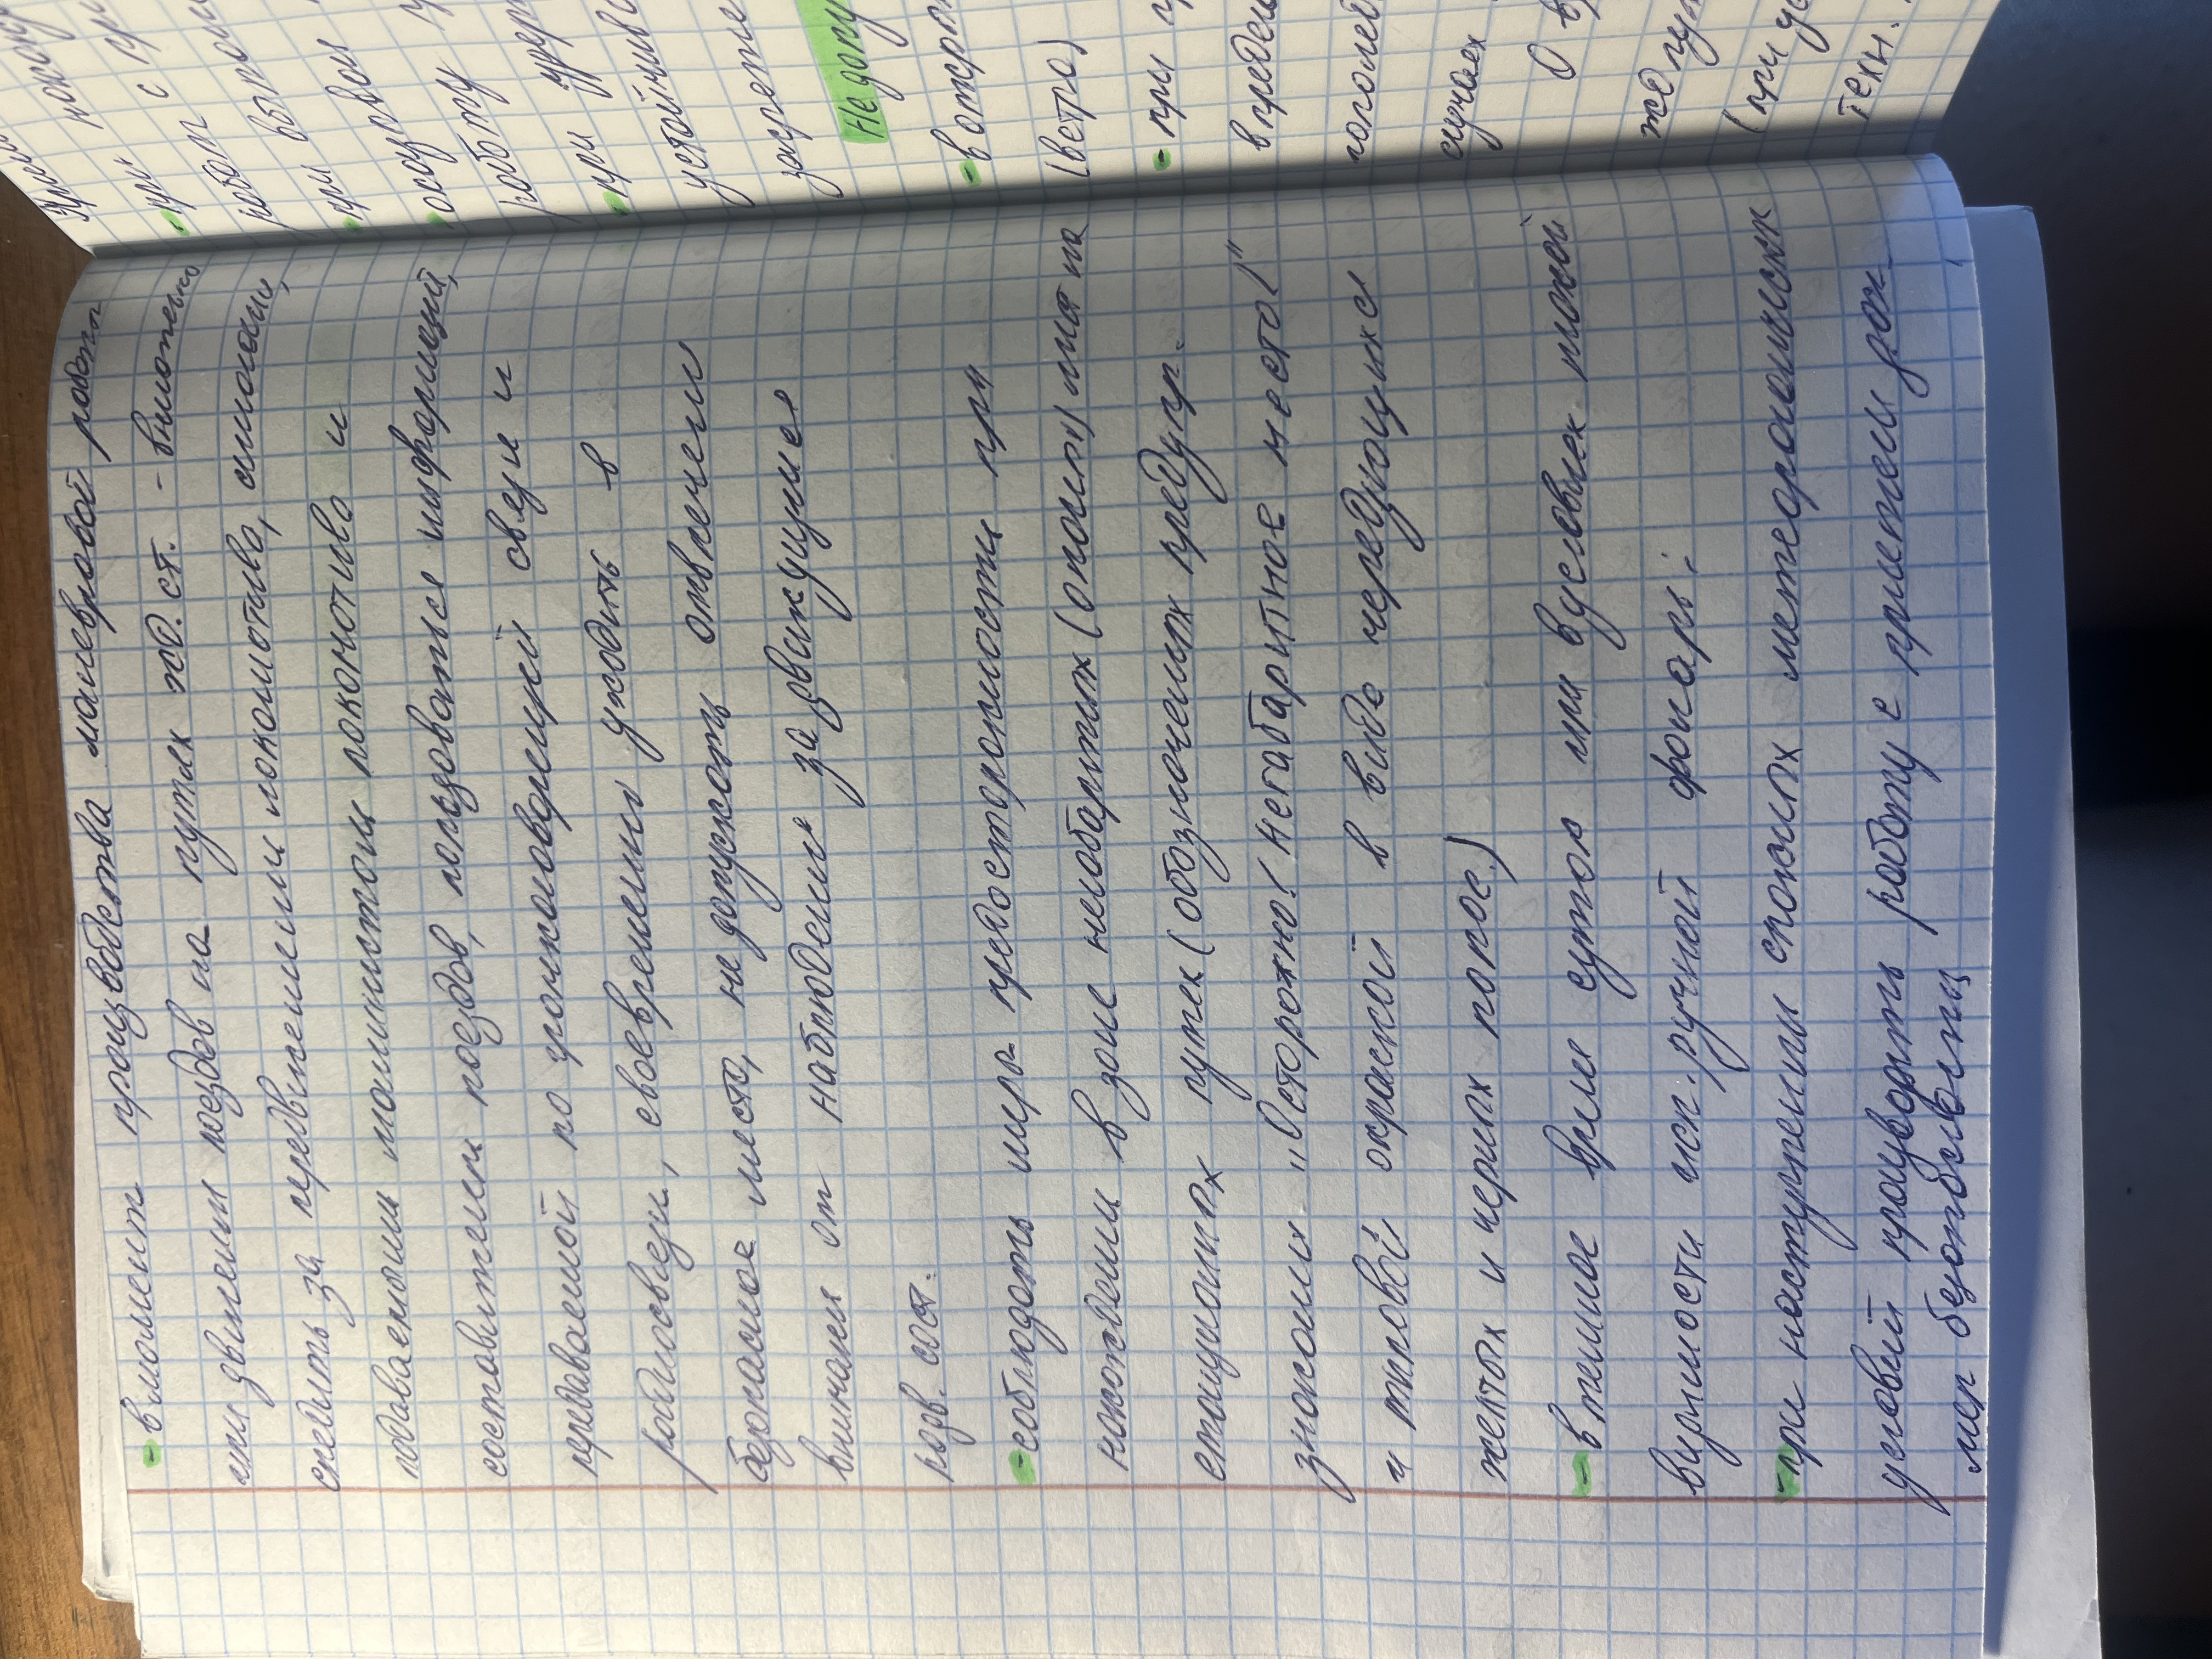 - в момент производства маневровой работы
или движении поездов на путях жд. ст. - внимательно
следить за передвижением локомотива, сигналами,
подаваемыми машинистом локомотива и
составителем поездов, пользоваться информацией,
передаваемой по громкоговорящей связи и
радиосвязи, своевременно уходить в
безопасное место, не допускать отвлечения
внимания от наблюдения за движущимся
подв. сост.
- соблюдать меры предосторожности при
нахождении в зоне негабаритных (опасных) мест на
станционных путях (обозначенных предупр.
знаками "Осторожно! Негабаритное место!"
и типовой окраской в виде чередующихся
желтых и черных полос.)
- в темное время суток или в условиях плохой
видимости исп. ручной фонарь;
- при наступлении сложных метеорологических
условий производить работу с принятием доп.
мер безопасности
при
- при с
работ
при вы
работу
- при
устойчиво
запрете
Не допу
- в
(ветра)
- при
в предел
гололед
случаях
О в
же пу
(при у
техн.